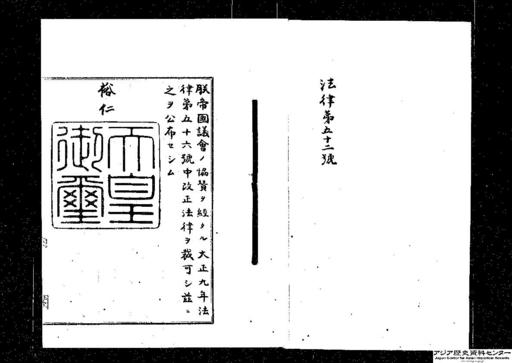 法律第五十二號
朕帝國議會ノ協賛ヲ經タル大正九年法
律第五十六號中改正法律ヲ裁可シ茲ニ
之ヲ公布セシム
裕仁
天皇
御璽
アジア歴史資料センター
Japan Center for Asian Historical Records